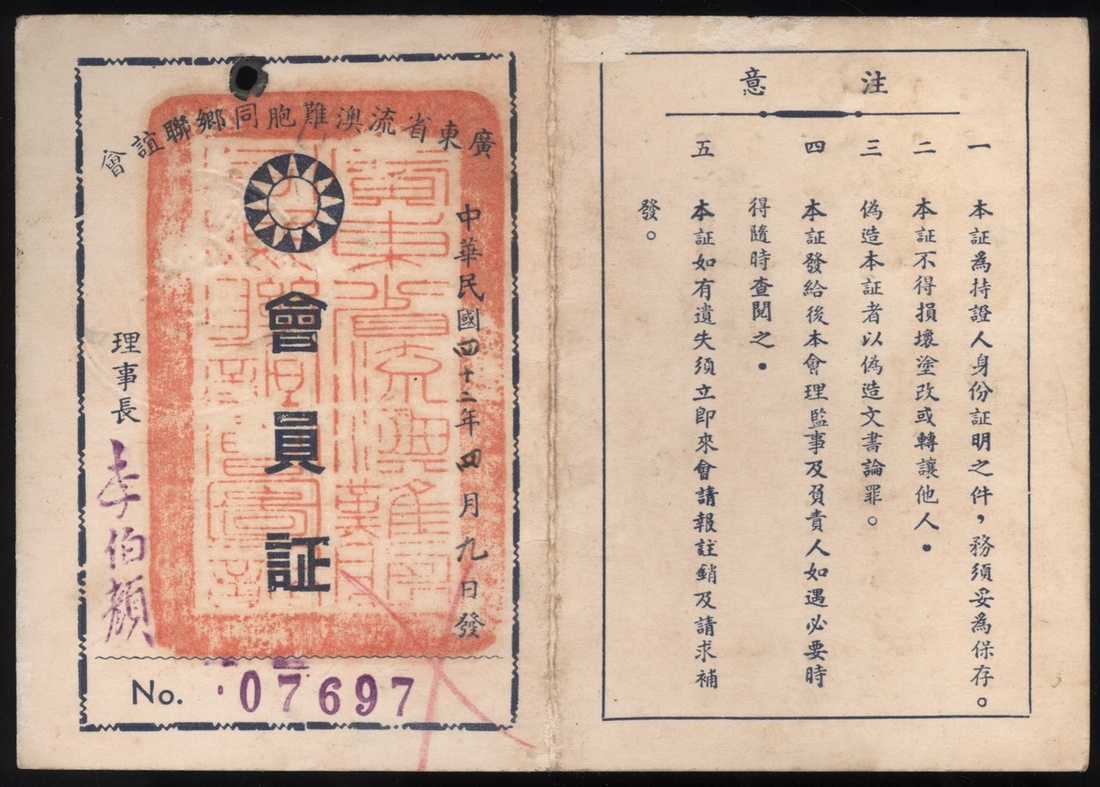 廣東省流澳難胞同鄉聯誼會
中華民國四十二年四月九日發
會員証
理事長
李伯
No. 07697
注意
一 本証為持證人身份証明之件，務須妥為保存。
二 本証不得損壞塗改或轉讓他人．
三 偽造本証者以偽造文書論罪。
四 本証發給後本會理監事及負責人如遇必要時
得隨時查閱之．
五 本証如有遺失須立即來會請報註銷及請求補
發。